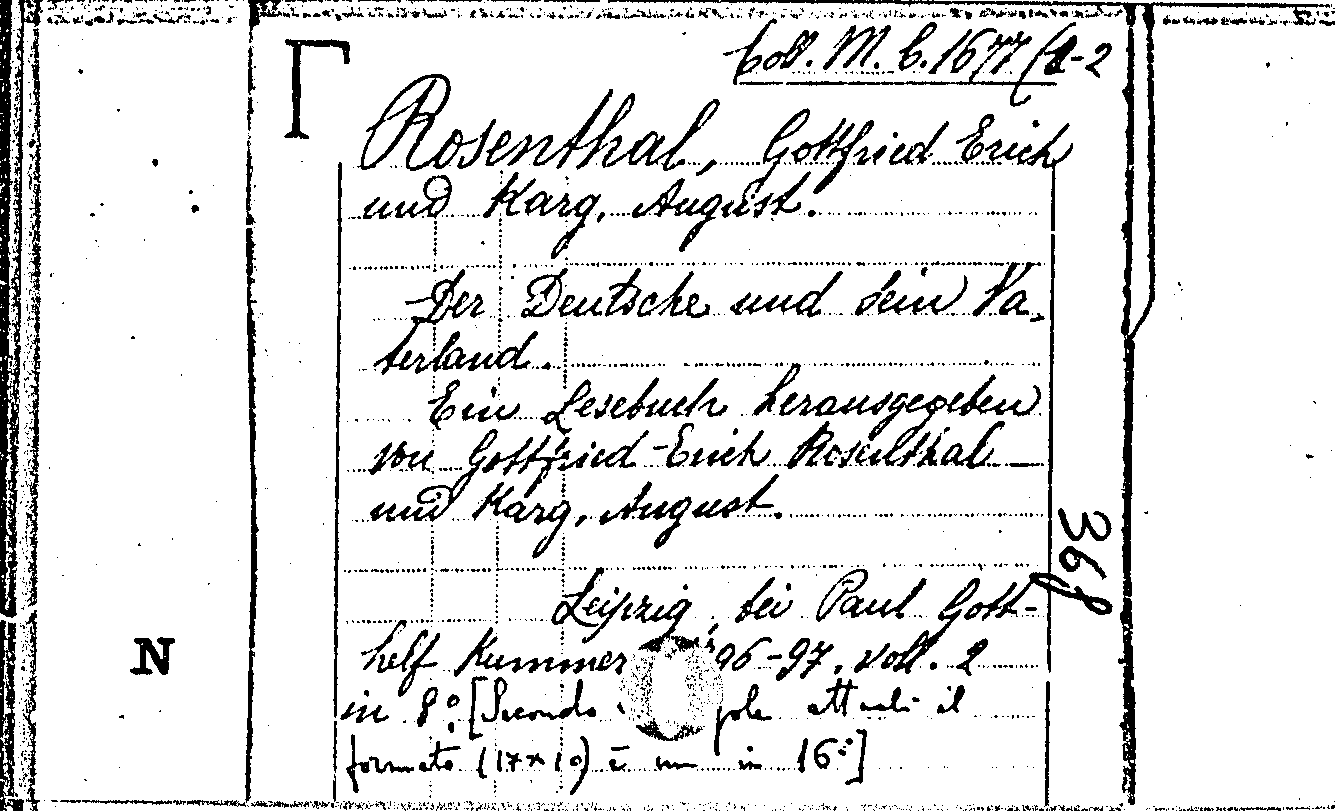 Coll. M. C. 1677 (1-2
Γ
Rosenthal, Gottfried Erich
und Karg, August.
Der Deutsche und sein Va-
terland.
Ein Lesebuch herausgegeben
von Gottfried-Erich Rosenthal
und Karg, August.
Leipzig, bei Paul Gott-
helf Kummer 96-97. voll. 2
in 8º [Secondo attuali il
formato (17x10) è un in 16º]
368
N